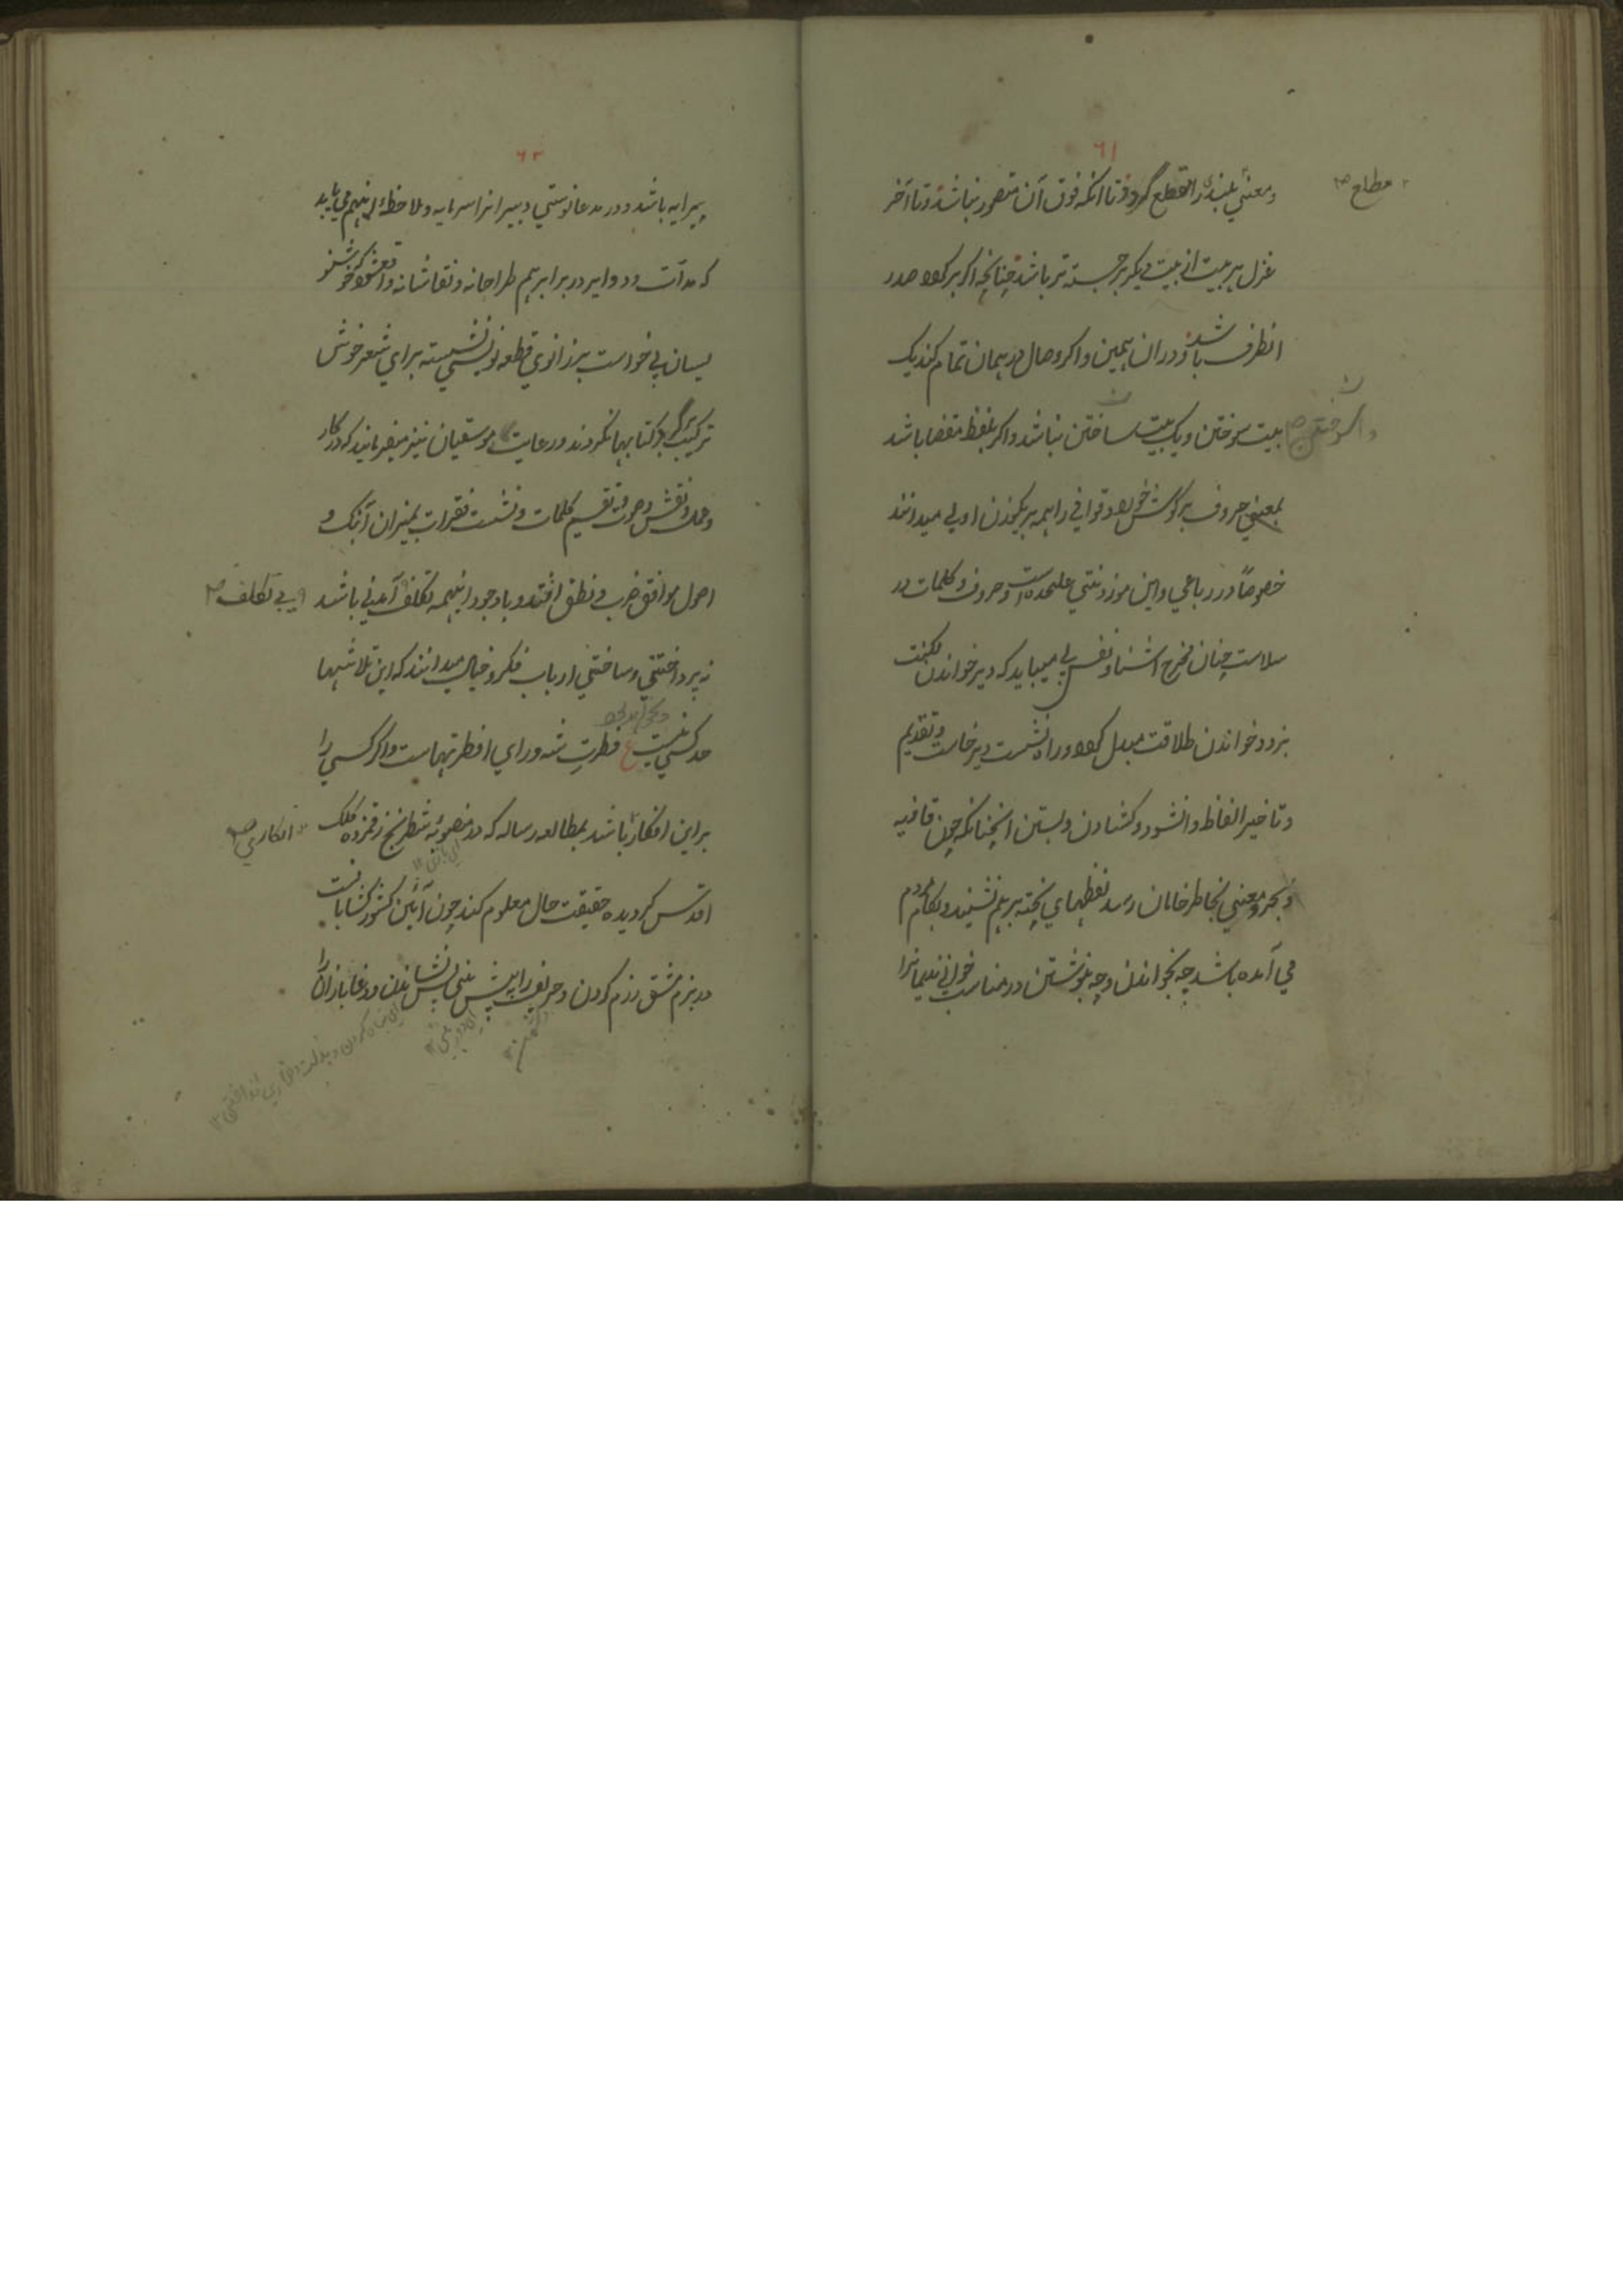 ٦١
مطاع
ومعنی بلند را تقطیع گردد تا آنکه فوق آن متصور نباشد و تا آخر
غزل هر بیت از بیت دیگر برجسته تر باشد چنانچه اگر هر که در صدر
انطرف باشد و در ان همین و اگر وصال در همان تمام کند یک
بیت سوختن و یک بیت ساختن نباشد و اگر بلفظ مقضا باشد
بمعنی حروف بر گوش خورد و قوافی را همه بر یکوزن اولی میدانند
خصوصاً در رباعی و این موزونیتی علیحده است و حروف و کلمات در
سلاست چنان مخرج آشنا و نفس می بیاید که دیر خواندن لکنت
بزود خواندن طلاقت مبدل کرد و در نشست و برخاست و تقدیم
و تاخیر الفاظ دانشور و کشادن و بستن آنچنانکه چون قافیه
و بحر و معنی بخاطر خامان رسد لفظهای پخته بر هم نشیند و بکار مردم
می آمده باشد چه بخواندن و چه بنوشتن در مناسب خوانی ندیمانرا
٦٢
پیرایه باشد و در مدعا نویسی دبیرانرا سرمایه و ملاحظهٔ اینهم می باید
که مدآت و دوایر در برابر هم طراحانه و نقاشانه واقع شود که خوشنو
یسان بی خواست بر زانوی قطعه نویسی نشسته برای شعر خوش
ترکیب گرد کتابها نگردند و رعایت موسیقیان نیز میفرمایند که در کار
و عمل و نقش و صوت تقسیم کلمات و نشست فقرات بمیزان آهنگ و
اصول موافق ضرب و نطق افتد و با وجود اینهمه تکلف آمیزی باشد
و بی تکلف
نه پرداختنی و ساختنی ارباب فکر و خیال میدانند که این تلاشها
حد کسی نیست ع فطرت شه ورای فطرتهاست و اگر کسی را
بر این افکار باشد بمطالعه رساله که در منصوبه شطرنج رقمزده کلک
انکاری
اقدس گردیده حقیقت حال معلوم کند چون آئین کشور کشایانست
در بزم مشق رزم کردن و حریف را به پیش بینی پس نشاندن و دغا بازان را